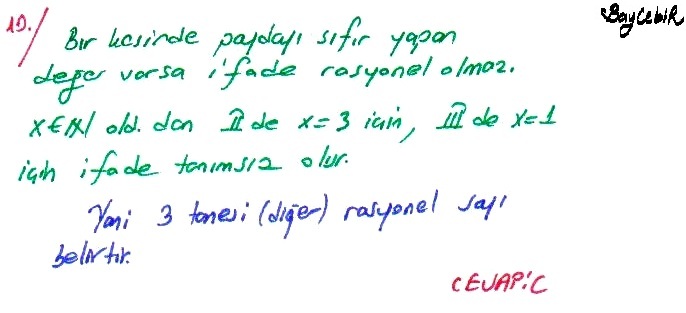 BayCebiR
19.
Bir kesirde paydayı sıfır yapan
değer varsa ifade rasyonel olmaz.
x∈ℕ old. dan II de x=3 için, III de x=1
için ifade tanımsız olur.
Yani 3 tanesi (diğer) rasyonel sayı
belirtir.
CEVAP:C